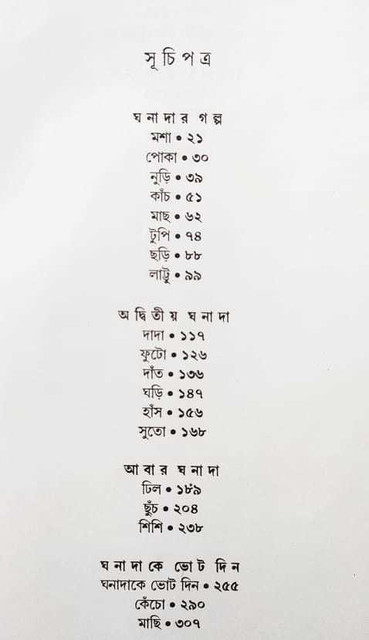 সূচিপত্র
ঘনাদার গল্প
মশা • ২১
পোকা • ৩০
নুড়ি • ৩৯
কাঁচ • ৫১
মাছ • ৬২
টুপি • ৭৪
ছড়ি • ৮৮
লাট্টু • ৯৯
অদ্বিতীয় ঘনাদা
দাদা • ১১৭
ফুটো • ১২৬
দাঁত • ১৩৬
ঘড়ি • ১৪৭
হাঁস • ১৫৬
সুতো • ১৬৮
আবার ঘনাদা
ঢিল • ১৮৯
ছুঁচ • ২০৪
শিশি • ২৩৮
ঘনাদাকে ভোট দিন
ঘনাদাকে ভোট দিন • ২৫৫
কেঁচো • ২৯০
মাছি • ৩০৭